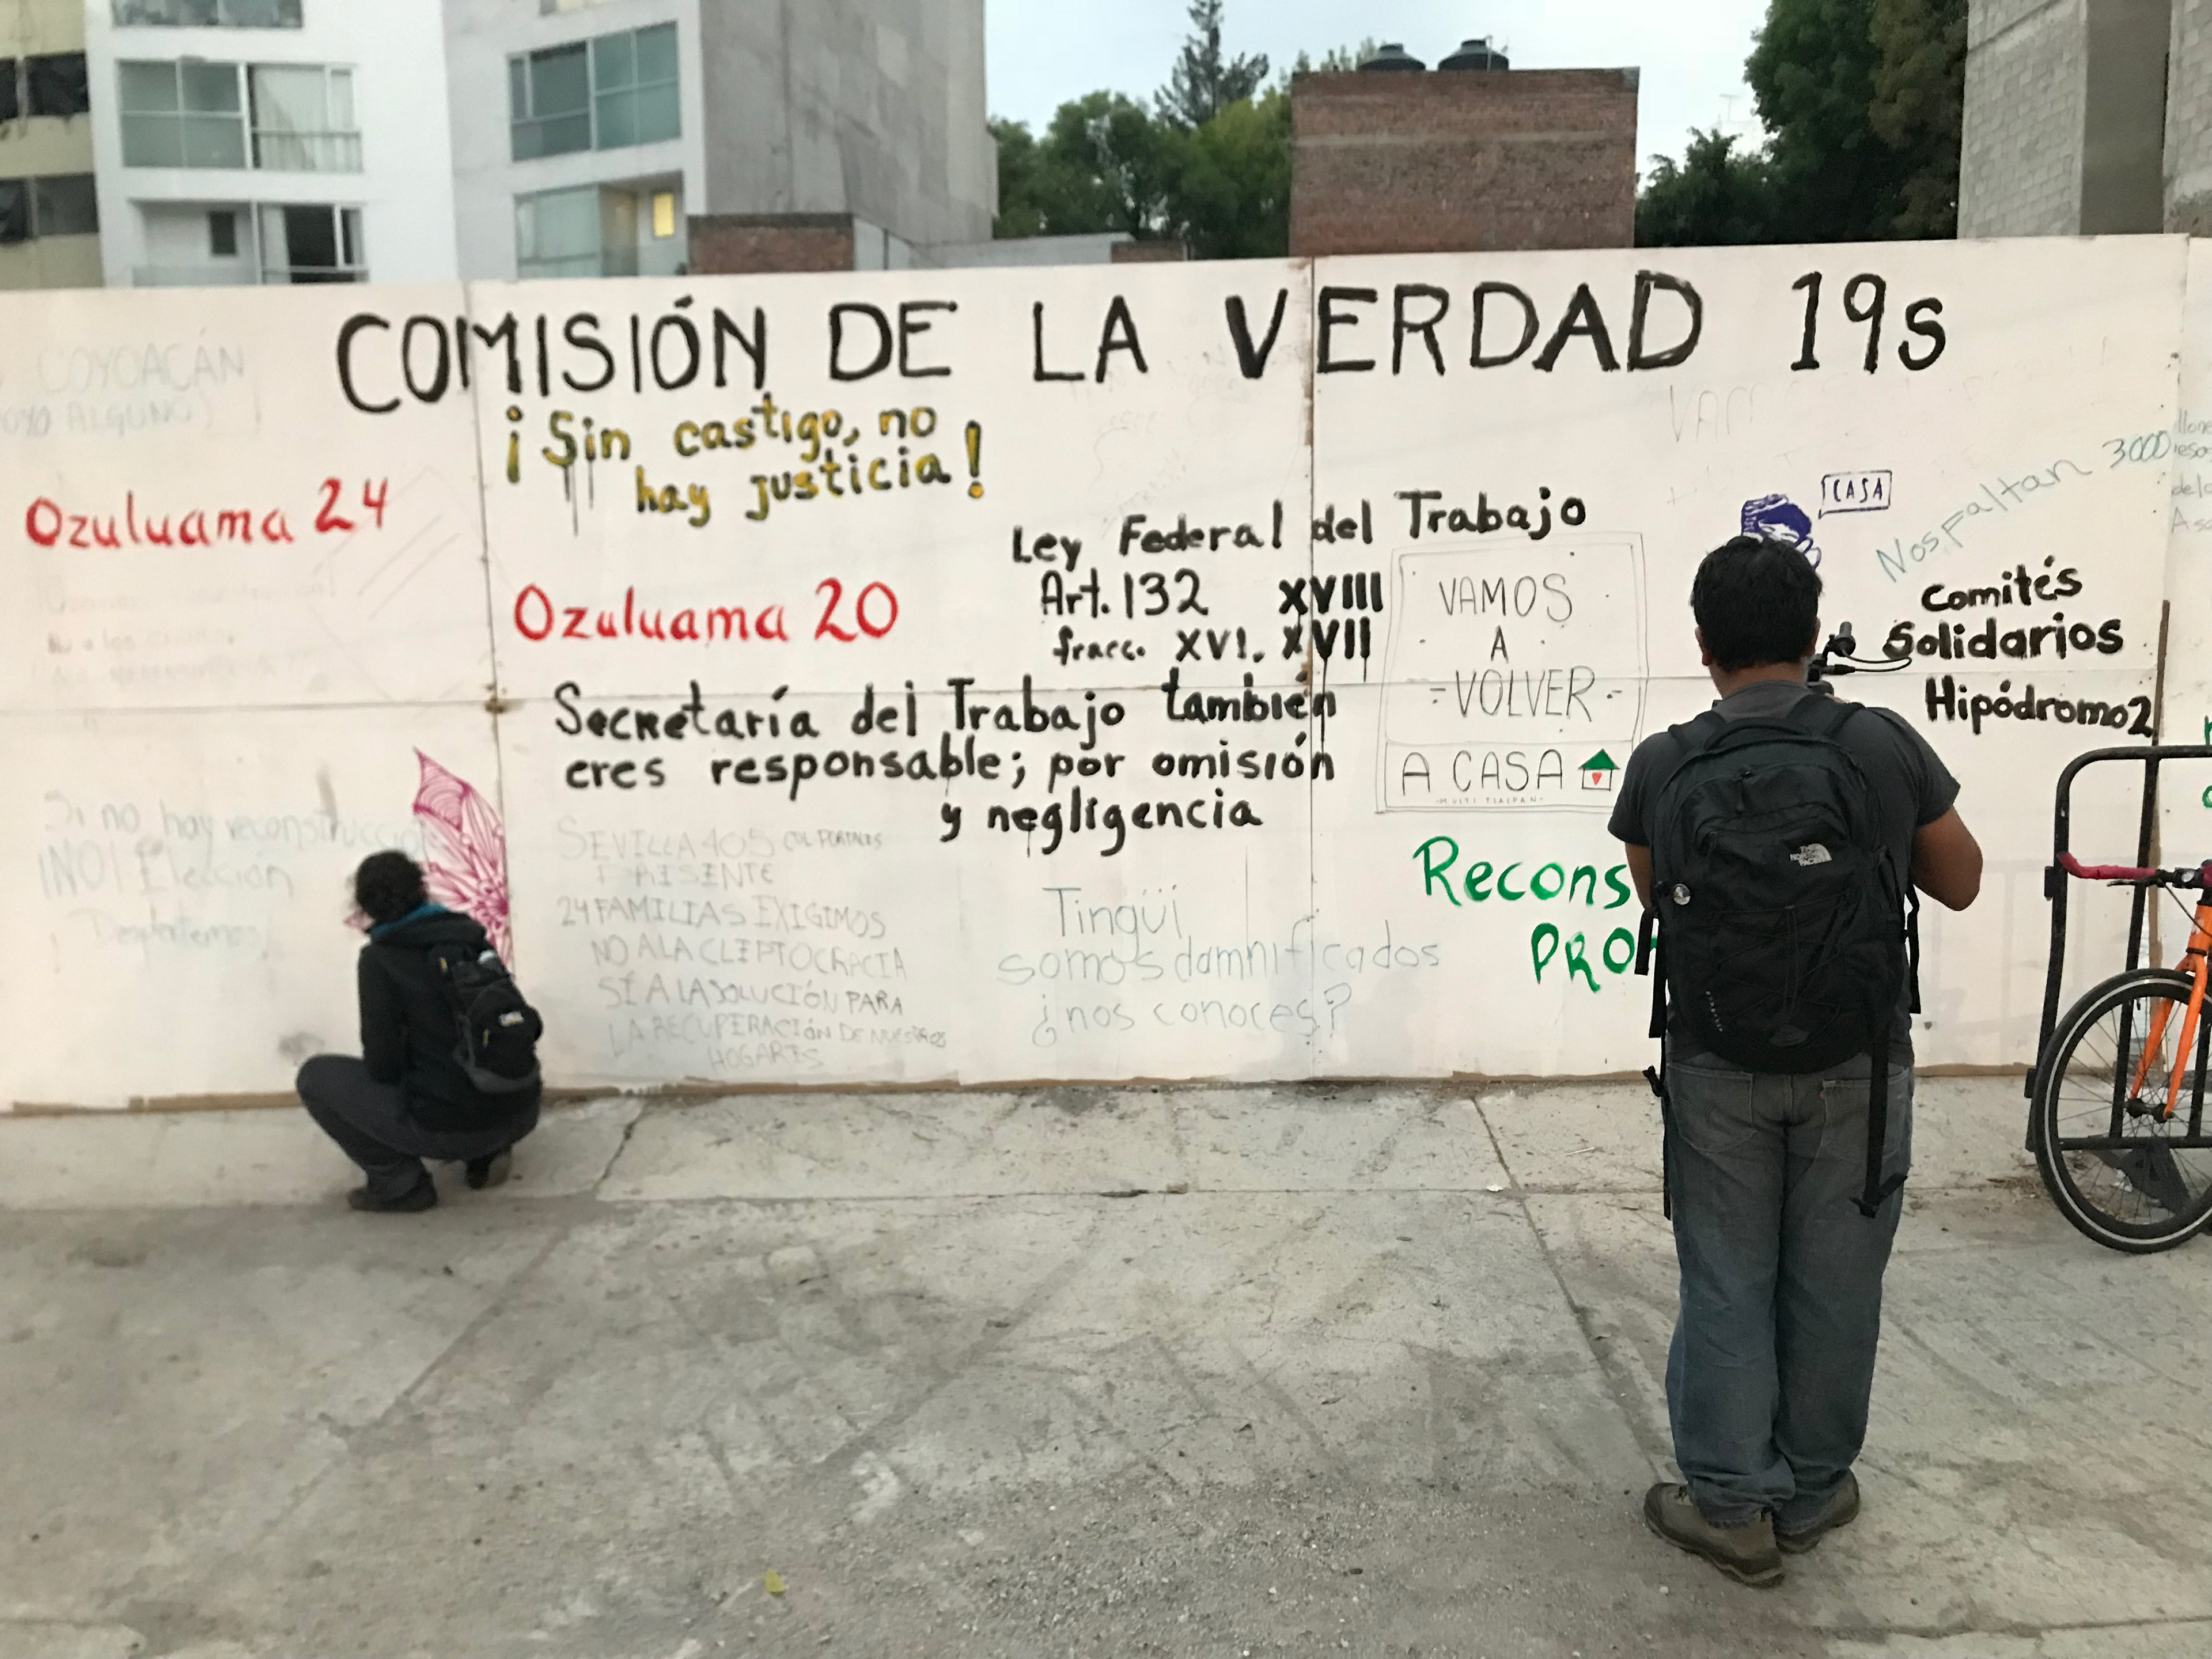 COMISIÓN DE LA VERDAD 19s
COYOACÁN
¡Sin castigo, no
hay justicia!
Ozuluama 24
Ozuluama 20
Ley Federal del Trabajo
Art. 132 XVIII
fracc. XVI, XVII
Secretaría del Trabajo también
eres responsable; por omisión
y negligencia
VAMOS
A
-VOLVER-
A CASA
-MULTI TLALPAN-
CASA
Nos faltan 3000
Comités
Solidarios
Hipódromo2
Si no hay reconstrucción
¡NO! Elección
SEVILLA 405 COL PORTALES
PRESENTE
24 FAMILIAS EXIGIMOS
NO A LA CLEPTOCRACIA
SÍ A LA SOLUCIÓN PARA
LA RECUPERACIÓN DE NUESTROS
HOGARES
Tingüi
somos damnificados
¿nos conoces?
Recons
PRO
THE NORTH FACE